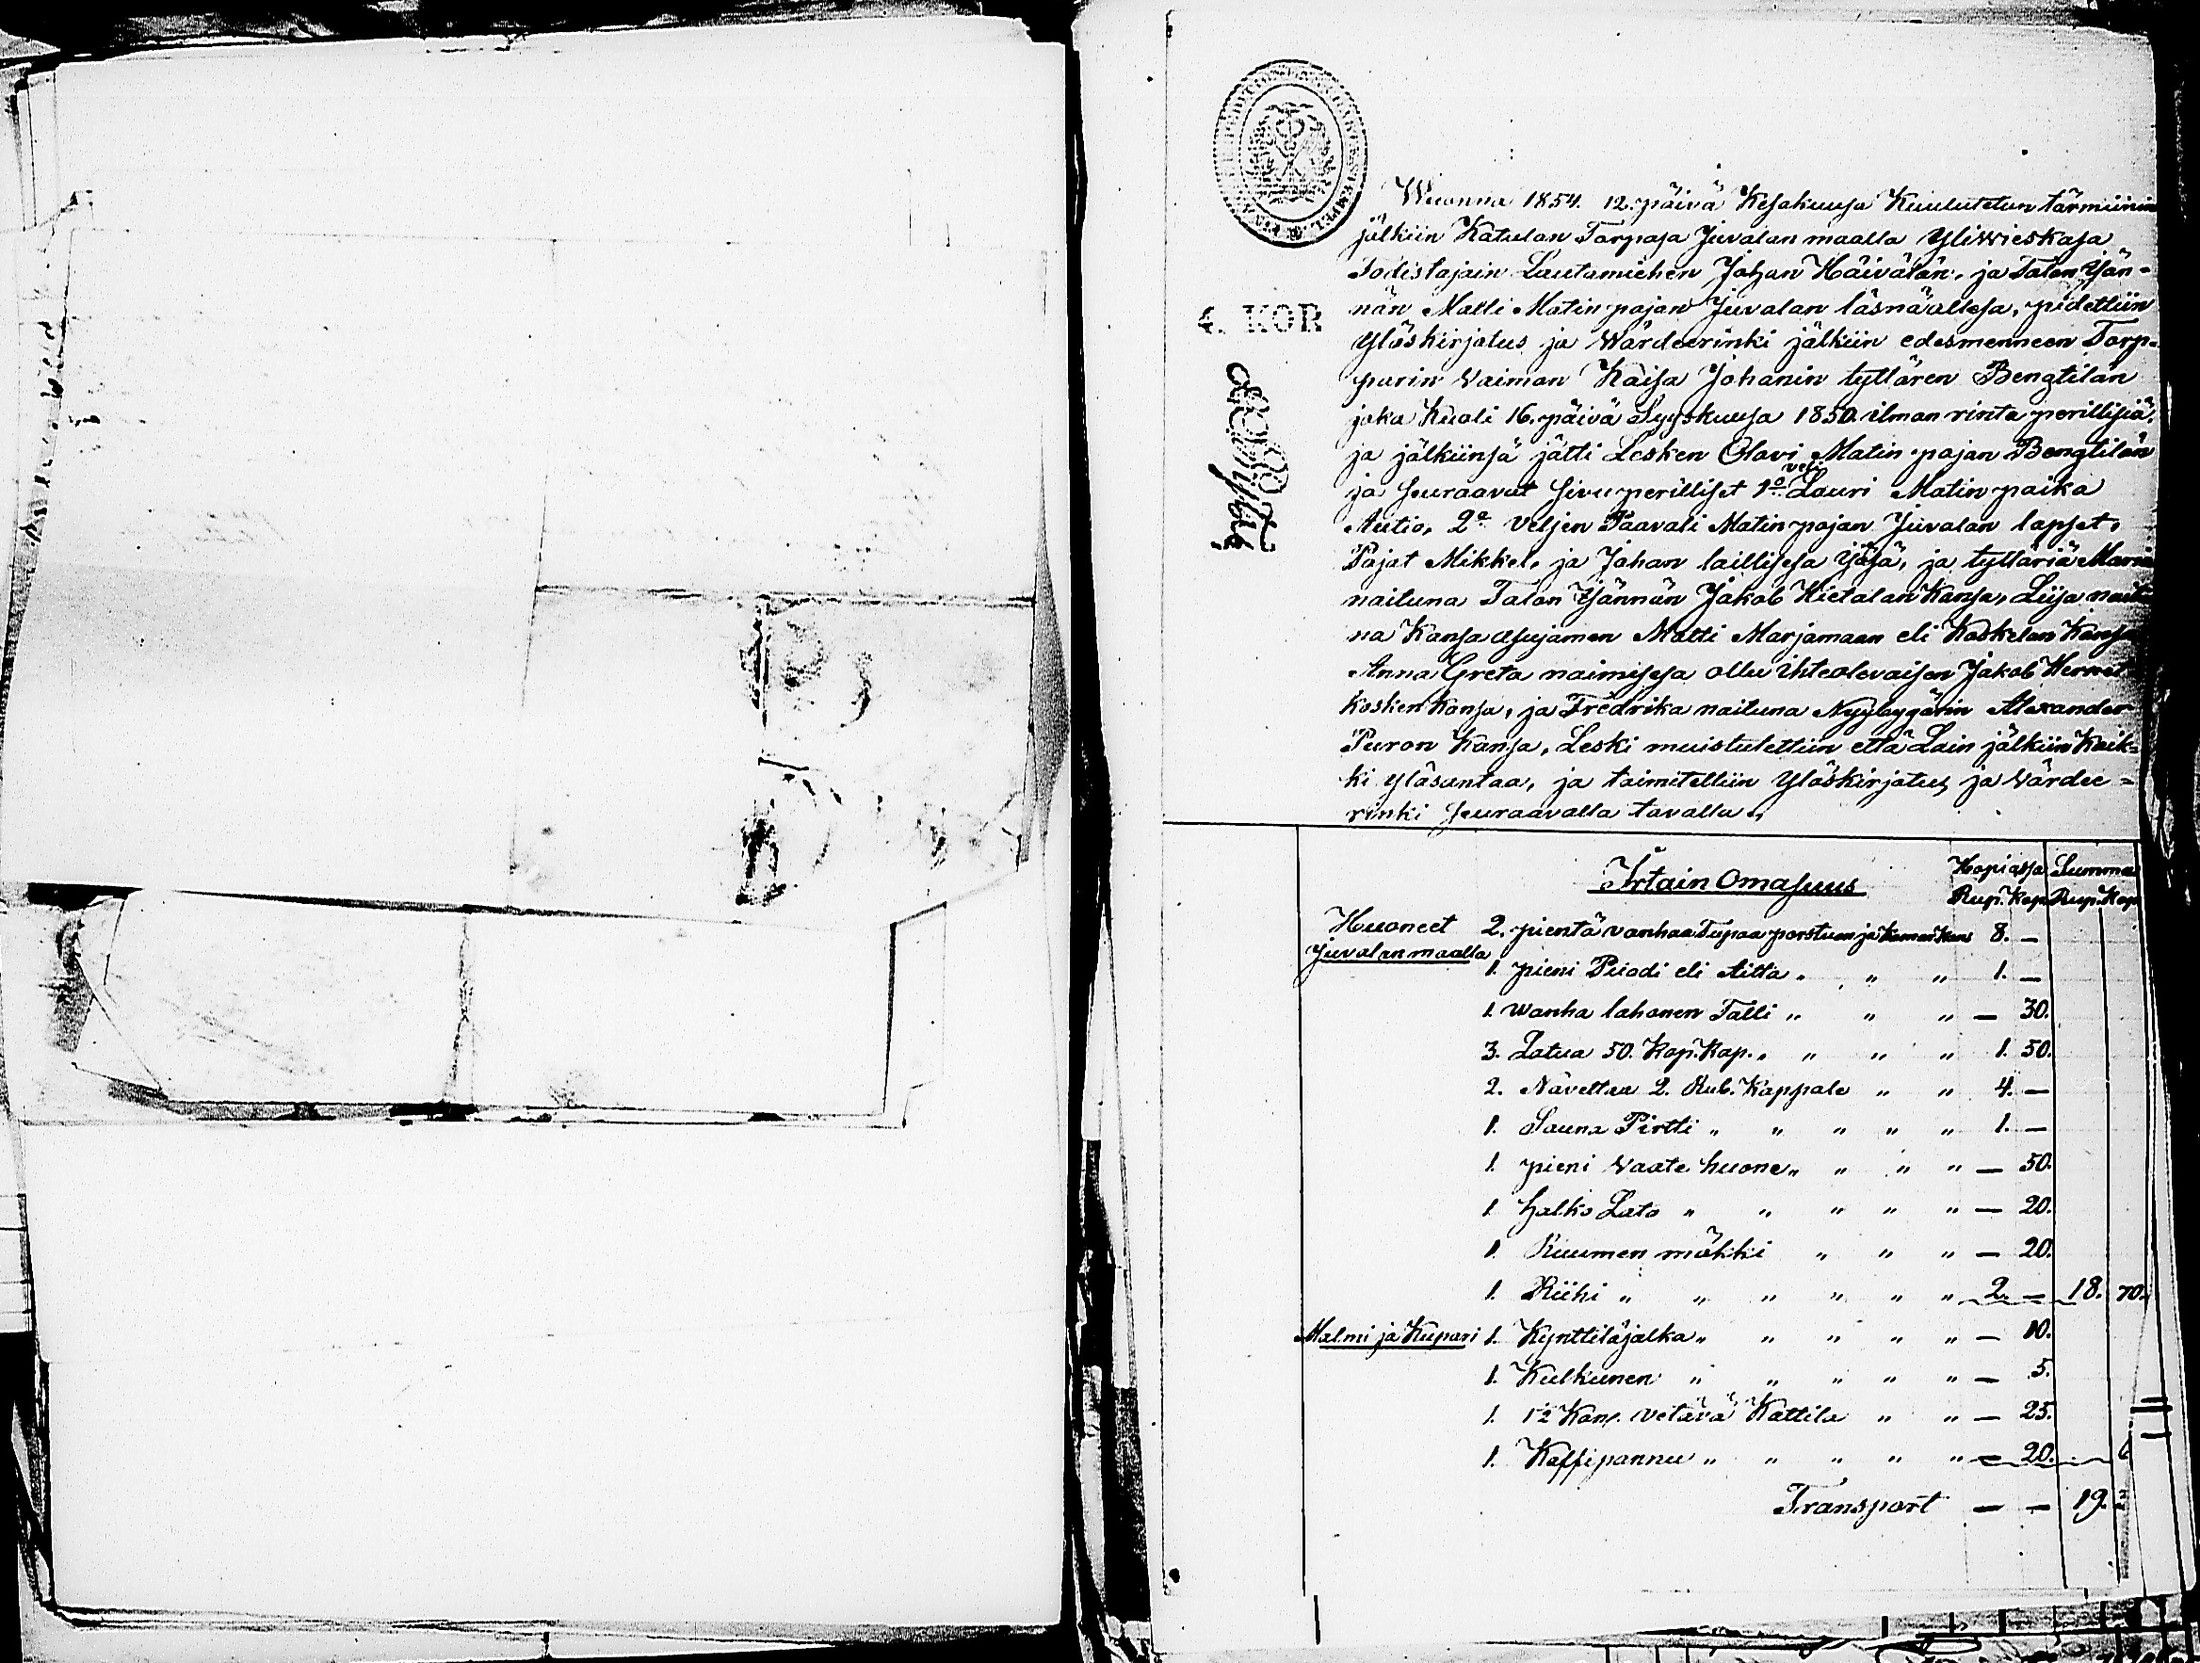 Wuonna 1854. 12. päivä Kesäkuusa Kuulutetun tärminin
jälkiin Katulan Torpasa Juvalan maalla Yliwieskasa
Todistajain Lautamiehen Johan Häivälän, ja Talon Isän-
nän Matti Matin pojan Juvalan läsnäollesa, pidettiin
4. KOP
Ylöskirjotus ja Wärdeerinki jälkiin edesmenneen Torp-
parin Vaimon Kaisa Johanin tyttären Bengtilän
joka Kuoli 16. päivä Syyskuusa 1850. ilman rinta perillisiä,
ja jälkiinsä jätti Lesken Olavi Matin pojan Bengtilän
ja seuraavat sivu perilliset 1o veli Lauri Matin poika
Autio, 2o Veljen Paavali Matin pojan Juvalan lapset,
Pojat Mikkel, ja Johan laillisesa Ijäsä, ja tyttäriä Maria
naituna Talon Isännän Jakob Hietalan Kansa, Liisa naitu
na Kansa asujamen Matti Marjamaan eli Koskelan Kansa
Anna Greta naimisesa ollu ihteolevaisen Jakob Hernet
kosken Kansa, ja Fredrika naituna Nyybyygärin Alexander
Puron Kansa, Leski muistutettiin että Lain jälkiin Kaik-
ki ylösantaa, ja toimitettiin Ylöskirjotus ja Värdee-
rinki seuraavalla tavalla.,
Irtain Omasuus Hopiassa Summa
Rup. Kop. Rup. Kop
Huoneet 2. pientä vanhaa Tupaa porstuan ja Kamarikans 8. —
Juvalan maalla
1. pieni Puodi eli Aitta „ „ „ 1. —
1. wanha lahonen Talli „ „ „ — 30.
3. Latua 50. Kop. Kap. „ „ „ „ 1. 50.
2. Navettaa 2. Rub. Kappale „ „ 4. —
1. Sauna Pirtti „ „ „ „ „ 1. —
1. pieni Vaate huone „ „ „ „ — 50.
1. halko Lato „ „ „ „ „ — 20.
1. Ruumen mökki „ „ „ — 20.
1. Riihi „ „ „ „ „ „ 2. — 18. 70.
Malmi ja Kupari 1. Kynttiläjalka „ „ „ „ „ — 10.
1. Kulkunen „ „ „ „ „ — 5.
1. 1½ Kan. vetävä Kattila „ „ — 25.
1. Kaffipannu „ „ „ „ „ — 20. — 6
Transport — — 19.